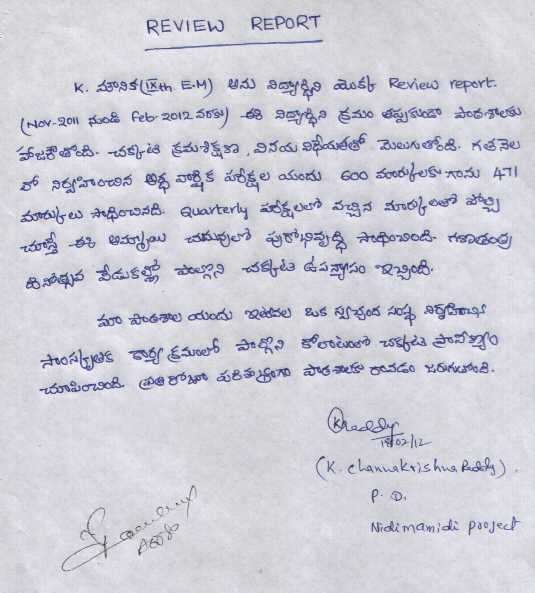 REVIEW REPORT
K. మౌనిక (IXth E.M) అను విద్యార్థిని యొక్క Review report.
(Nov-2011 నుండి Feb-2012 వరకు) ఈ విద్యార్థిని క్రమం తప్పకుండా పాఠశాలకు
హాజరౌతోంది. చక్కటి క్రమశిక్షణ, వినయ విధేయతతో మెలుగుతోంది. గతనెల
లో నిర్వహించిన అర్ధ వార్షిక పరీక్షల యందు 600 మార్కులకు గాను 471
మార్కులు సాధించినది. Quarterly పరీక్షలలో వచ్చిన మార్కులతో పోల్చి
చూస్తే ఈ అమ్మాయి చదువులో పురోభివృద్ధి సాధించింది. గణతంత్ర
దినోత్సవ వేడుకల్లో పాల్గొని చక్కటి ఉపన్యాసం ఇచ్చింది.
మా పాఠశాల యందు ఇటీవల ఒక స్వచ్ఛంద సంస్థ నిర్వహించిన
సాంస్కృతిక కార్యక్రమంలో పాల్గొని కోలాటంలో చక్కటి ప్రావీణ్యం
చూపించింది. ప్రతిరోజూ పరిశుభ్రంగా పాఠశాలకు రావడం జరుగుతోంది.
KReddy
18/02/12
(K. Channakrishna Reddy).
P. D.
Nidimamidi project